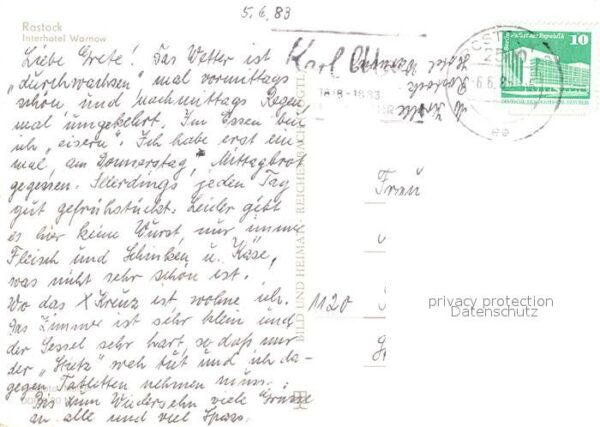 5.6.83
Rostock
Interhotel Warnow
Liebe Grete! Das Wetter ist
„durchwachsen" mal vormittags
schön und nachmittags Regen
mal umgekehrt. Im Essen bin
ich „eisern". Ich habe erst ein
mal, am Donnerstag, Mittagbrot
gegessen. Allerdings jeden Tag
gut gefrühstückt. Leider gibt
es hier keine Wurst, nur immer
Fleisch und Schinken u. Käse,
was nicht sehr schön ist.
Wo das X Kreuz ist wohne ich.
Das Zimmer ist sehr klein und
der Sessel sehr hart so daß mir
der „Stütz" weh tut und ich da-
gegen Tabletten nehmen muss.
Bis zum Wiedersehn viele Grüsse
an alle und viel Spass.
BILD UND HEIMAT REICHENBACH
Karl
1818-1883
Rostock
Hotel Warnow
6.6.8
10
Berlin, Palast der Republik
DEUTSCHE DEMOKRATISCHE REPUBLIK
Frau
1120
privacy protection
Datenschutz